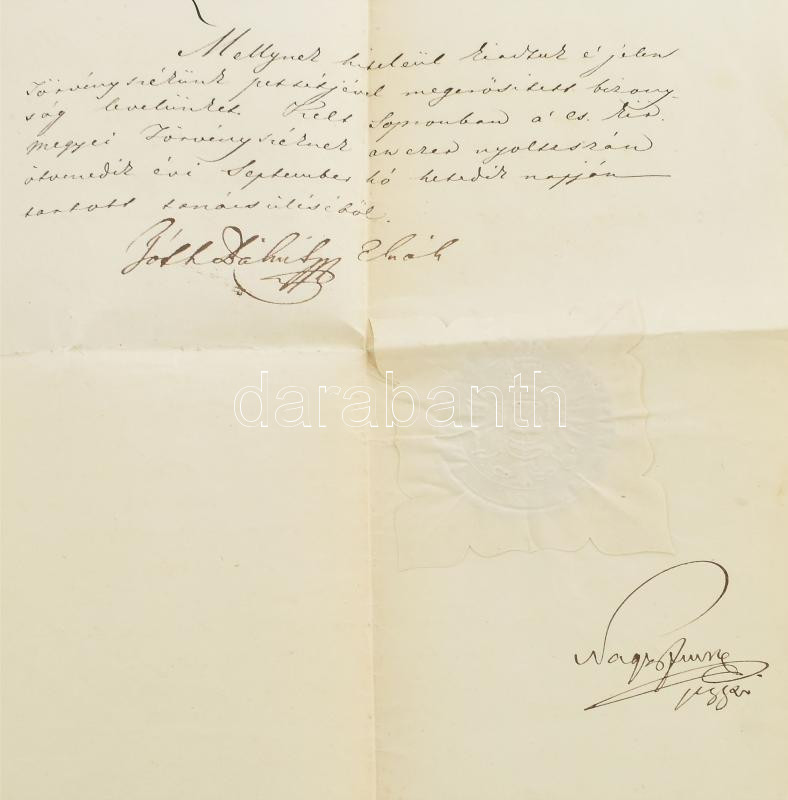 Mellynek hiteleül kiadtuk é jelen
Törvényszékünk petsétjével megerősitett bizony-
ság levelünket. Kelt Sopronban a' cs. kir.
megyei Törvényszéknek an ezer nyoltcszáz
ötvenedik évi September hó hetedik napján
tartott tanácsüléséből.
Tóth Elnök
darabanth
Nagy